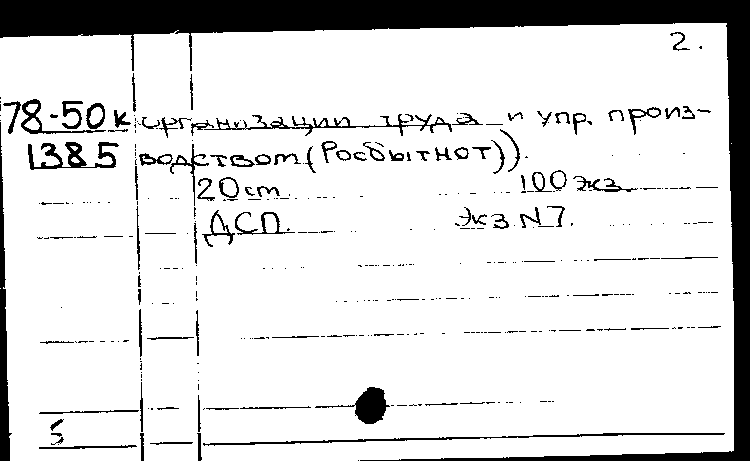 2.
78-50к организации труда и упр. произ-
1385 водством (Росбытнот)).
20 cm. 100 экз.
ДСП. Экз N 7.
5